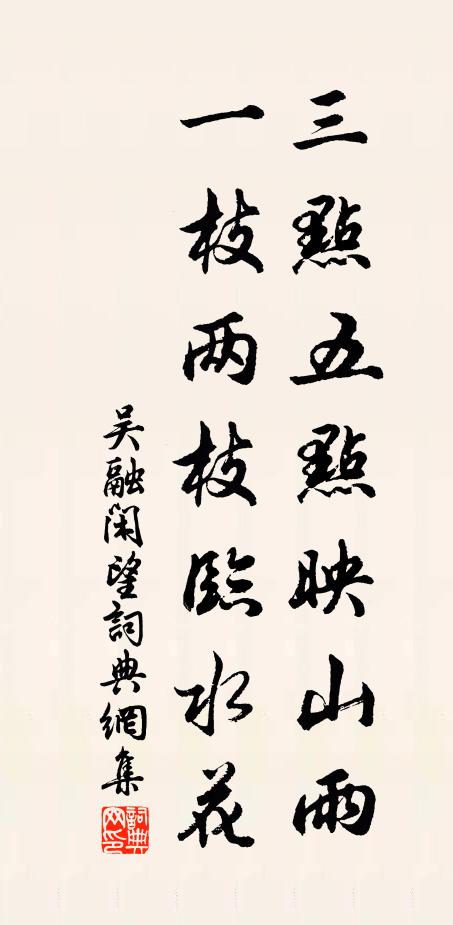 三點五點映山雨
一枝两枝臨水花
吳融閑望詞典網集
詞典网印